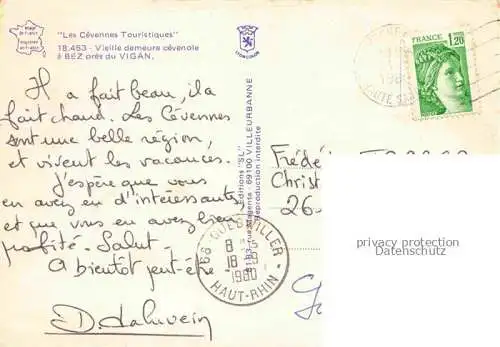 "Les Cévennes Touristiques"
18.453 - Vieille demeure cévenole
à BEZ près du VIGAN.
LION COLOR
FRANCE 1,20
Il a fait beau, il a
fait chaud. Les Cévennes
sont une belle région,
et vivent les vacances.
J'espère que vous
en avez eu d'intéressantes,
et que vous en avez bien
profité. Salut.
A bientôt peut-être.
Editions "SL"
81-83, rue Magenta 69100 VILLEURBANNE
Reproduction interdite
Frédé
Christ
26
68 GUEBWILLER
18-8
1980
HAUT-RHIN
privacy protection
Datenschutz